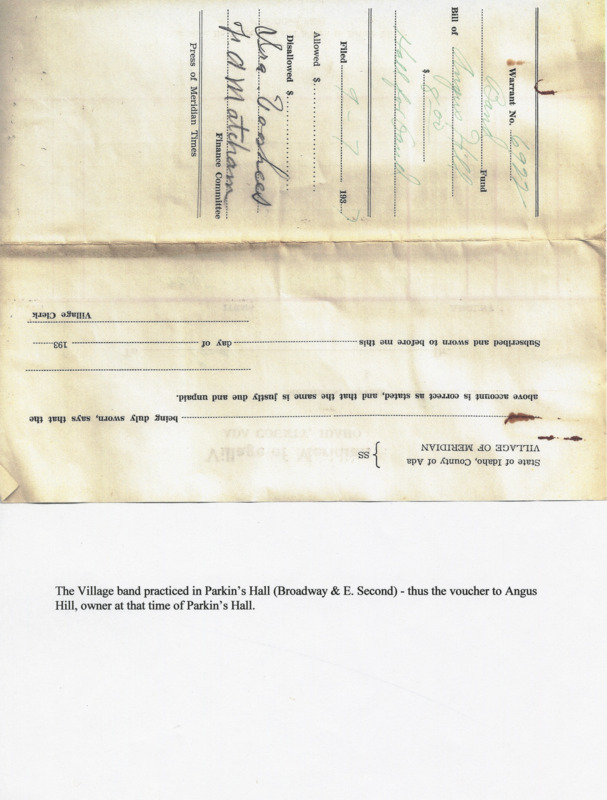 Warrant No. 6977
Band Fund
Bill of Angus Hill
$ 8.00
Hall for Band
Filed 9 - 7 193
Allowed $
Disallowed $
Ira Voorhees
F A Matcham
Finance Committee
Press of Meridian Times
State of Idaho, County of Ada
VILLAGE OF MERIDIAN } SS
being duly sworn, says that the
above account is correct as stated, and that the same is justly due and unpaid.
Subscribed and sworn to before me this day of 193
Village Clerk
Village of Meridian
ADA COUNTY, IDAHO
The Village band practiced in Parkin's Hall (Broadway & E. Second) - thus the voucher to Angus
Hill, owner at that time of Parkin's Hall.